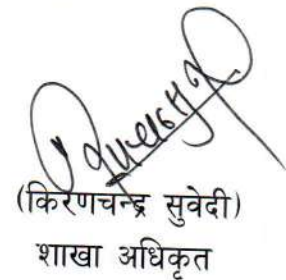 (किरणचन्द्र सुवेदी)
शाखा अधिकृत